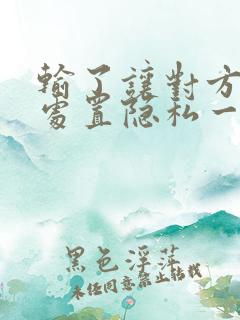 輸了讓對方
處置隐私一
黑色淫蕩
未经同意禁止转载